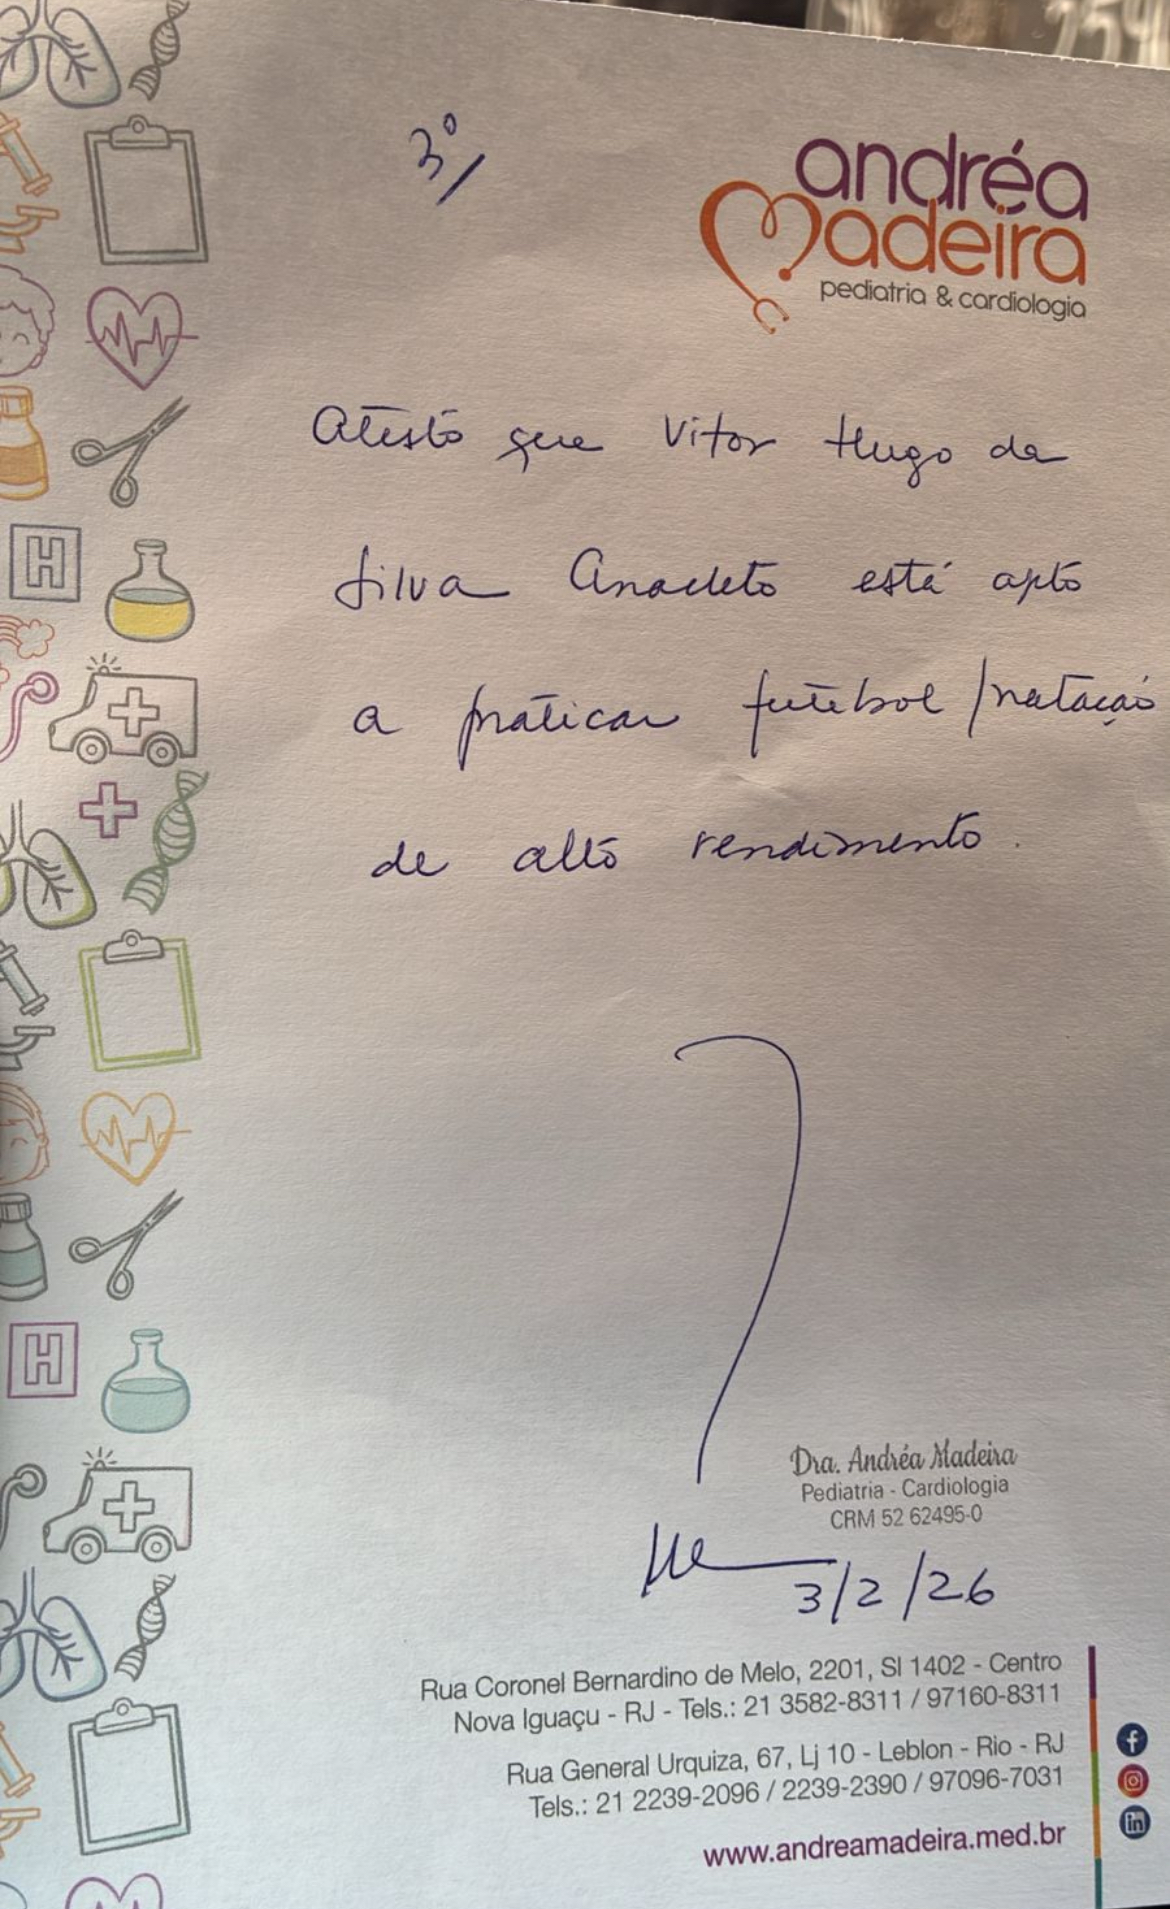 3º/
andréa
Madeira
pediatria & cardiologia
Atesto que Vitor Hugo da
Silva Anacleto está apto
a praticar futebol/natação
de alto rendimento.
Dra. Andréa Madeira
Pediatria - Cardiologia
CRM 52 62495-0
3/2/26
Rua Coronel Bernardino de Melo, 2201, Sl 1402 - Centro
Nova Iguaçu - RJ - Tels.: 21 3582-8311 / 97160-8311
Rua General Urquiza, 67, Lj 10 - Leblon - Rio - RJ
Tels.: 21 2239-2096 / 2239-2390 / 97096-7031
www.andreamadeira.med.br
H
H